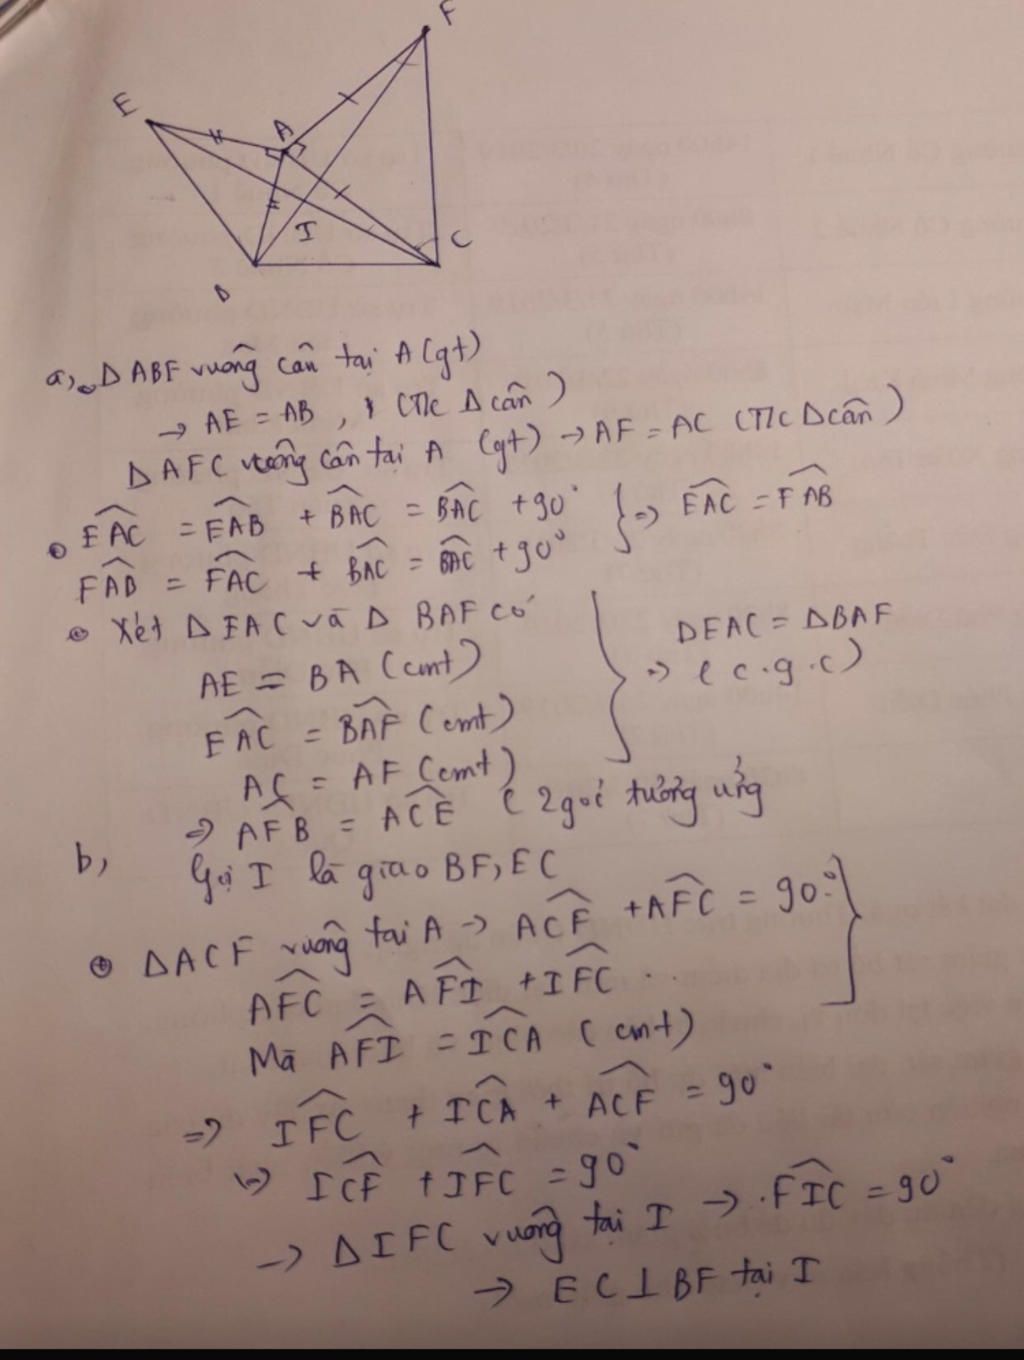 F
E
A
I
C
B
a, ΔABF vuông cân tại A (gt)
→ AE = AB, (T/c Δ cân)
ΔAFC vuông cân tại A (gt) → AF = AC (T/c Δ cân)
EAC = EAB + BAC = BAC + 90° } => EAC = FAB
FAB = FAC + BAC = BAC + 90°
Xét ΔEAC và Δ BAF có
AE = BA (cmt)
ΔEAC = ΔBAF
=> (c.g.c)
EAC = BAF (cmt)
AC = AF (cmt)
=> AFB = ACE (2 goí tưởng ưng
b, Gọi I là giao BF, EC
ΔACF vuông tại A -> ACF + AFC = 90°
AFC = AFI + IFC
Mà AFI = ICA (cmt)
=> IFC + ICA + ACF = 90°
=> ICF + IFC = 90°
-> ΔIFC vuông tại I -> FIC = 90°
-> EC⊥BF tại I